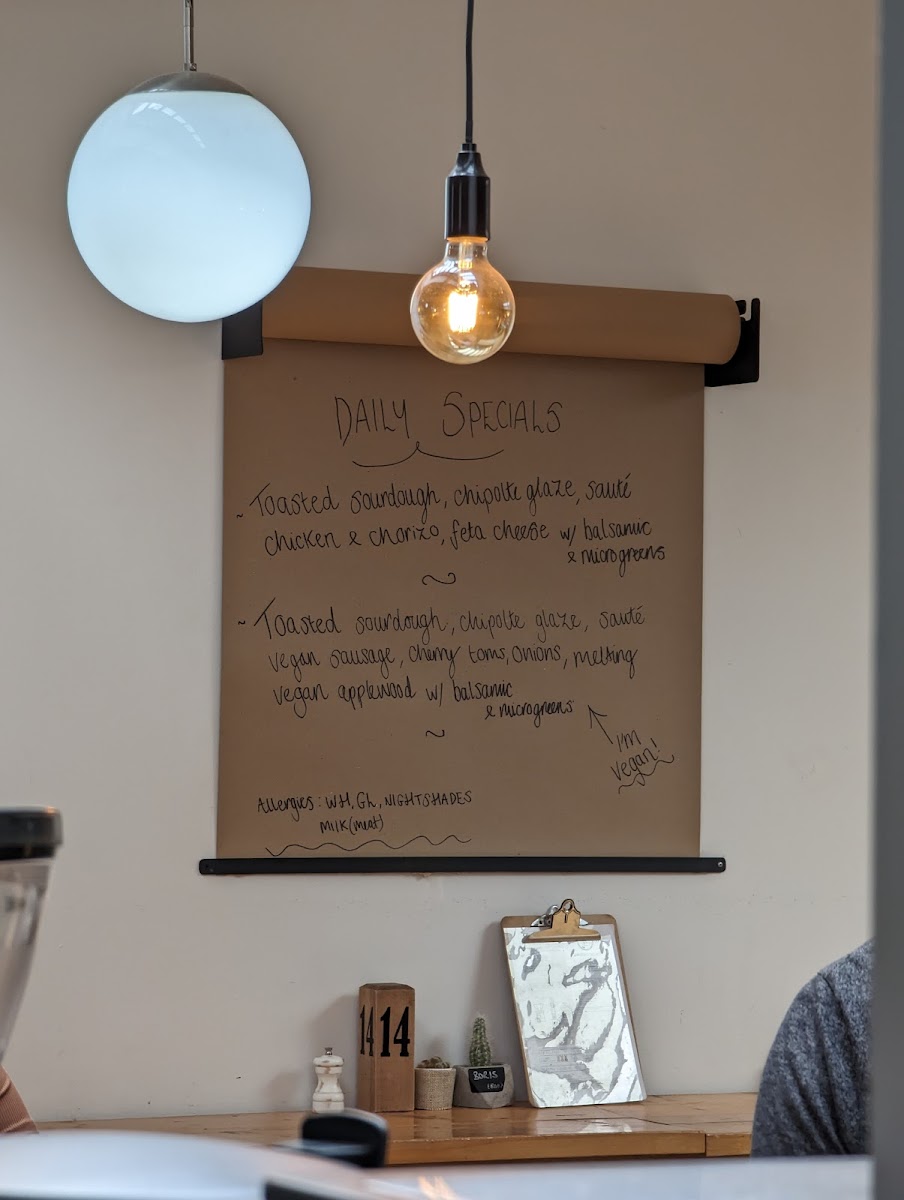 DAILY SPECIALS
~ Toasted sourdough, chipotle glaze, sauté
chicken & chorizo, feta cheese w/ balsamic
& microgreens
~
~ Toasted sourdough, chipotle glaze, sauté
vegan sausage, cherry toms, onions, melting
vegan applewood w/ balsamic
& microgreens
~
I'm
vegan!
Allergies: WH, GL, NIGHTSHADES
MILK (meat)
14 14
BORIS